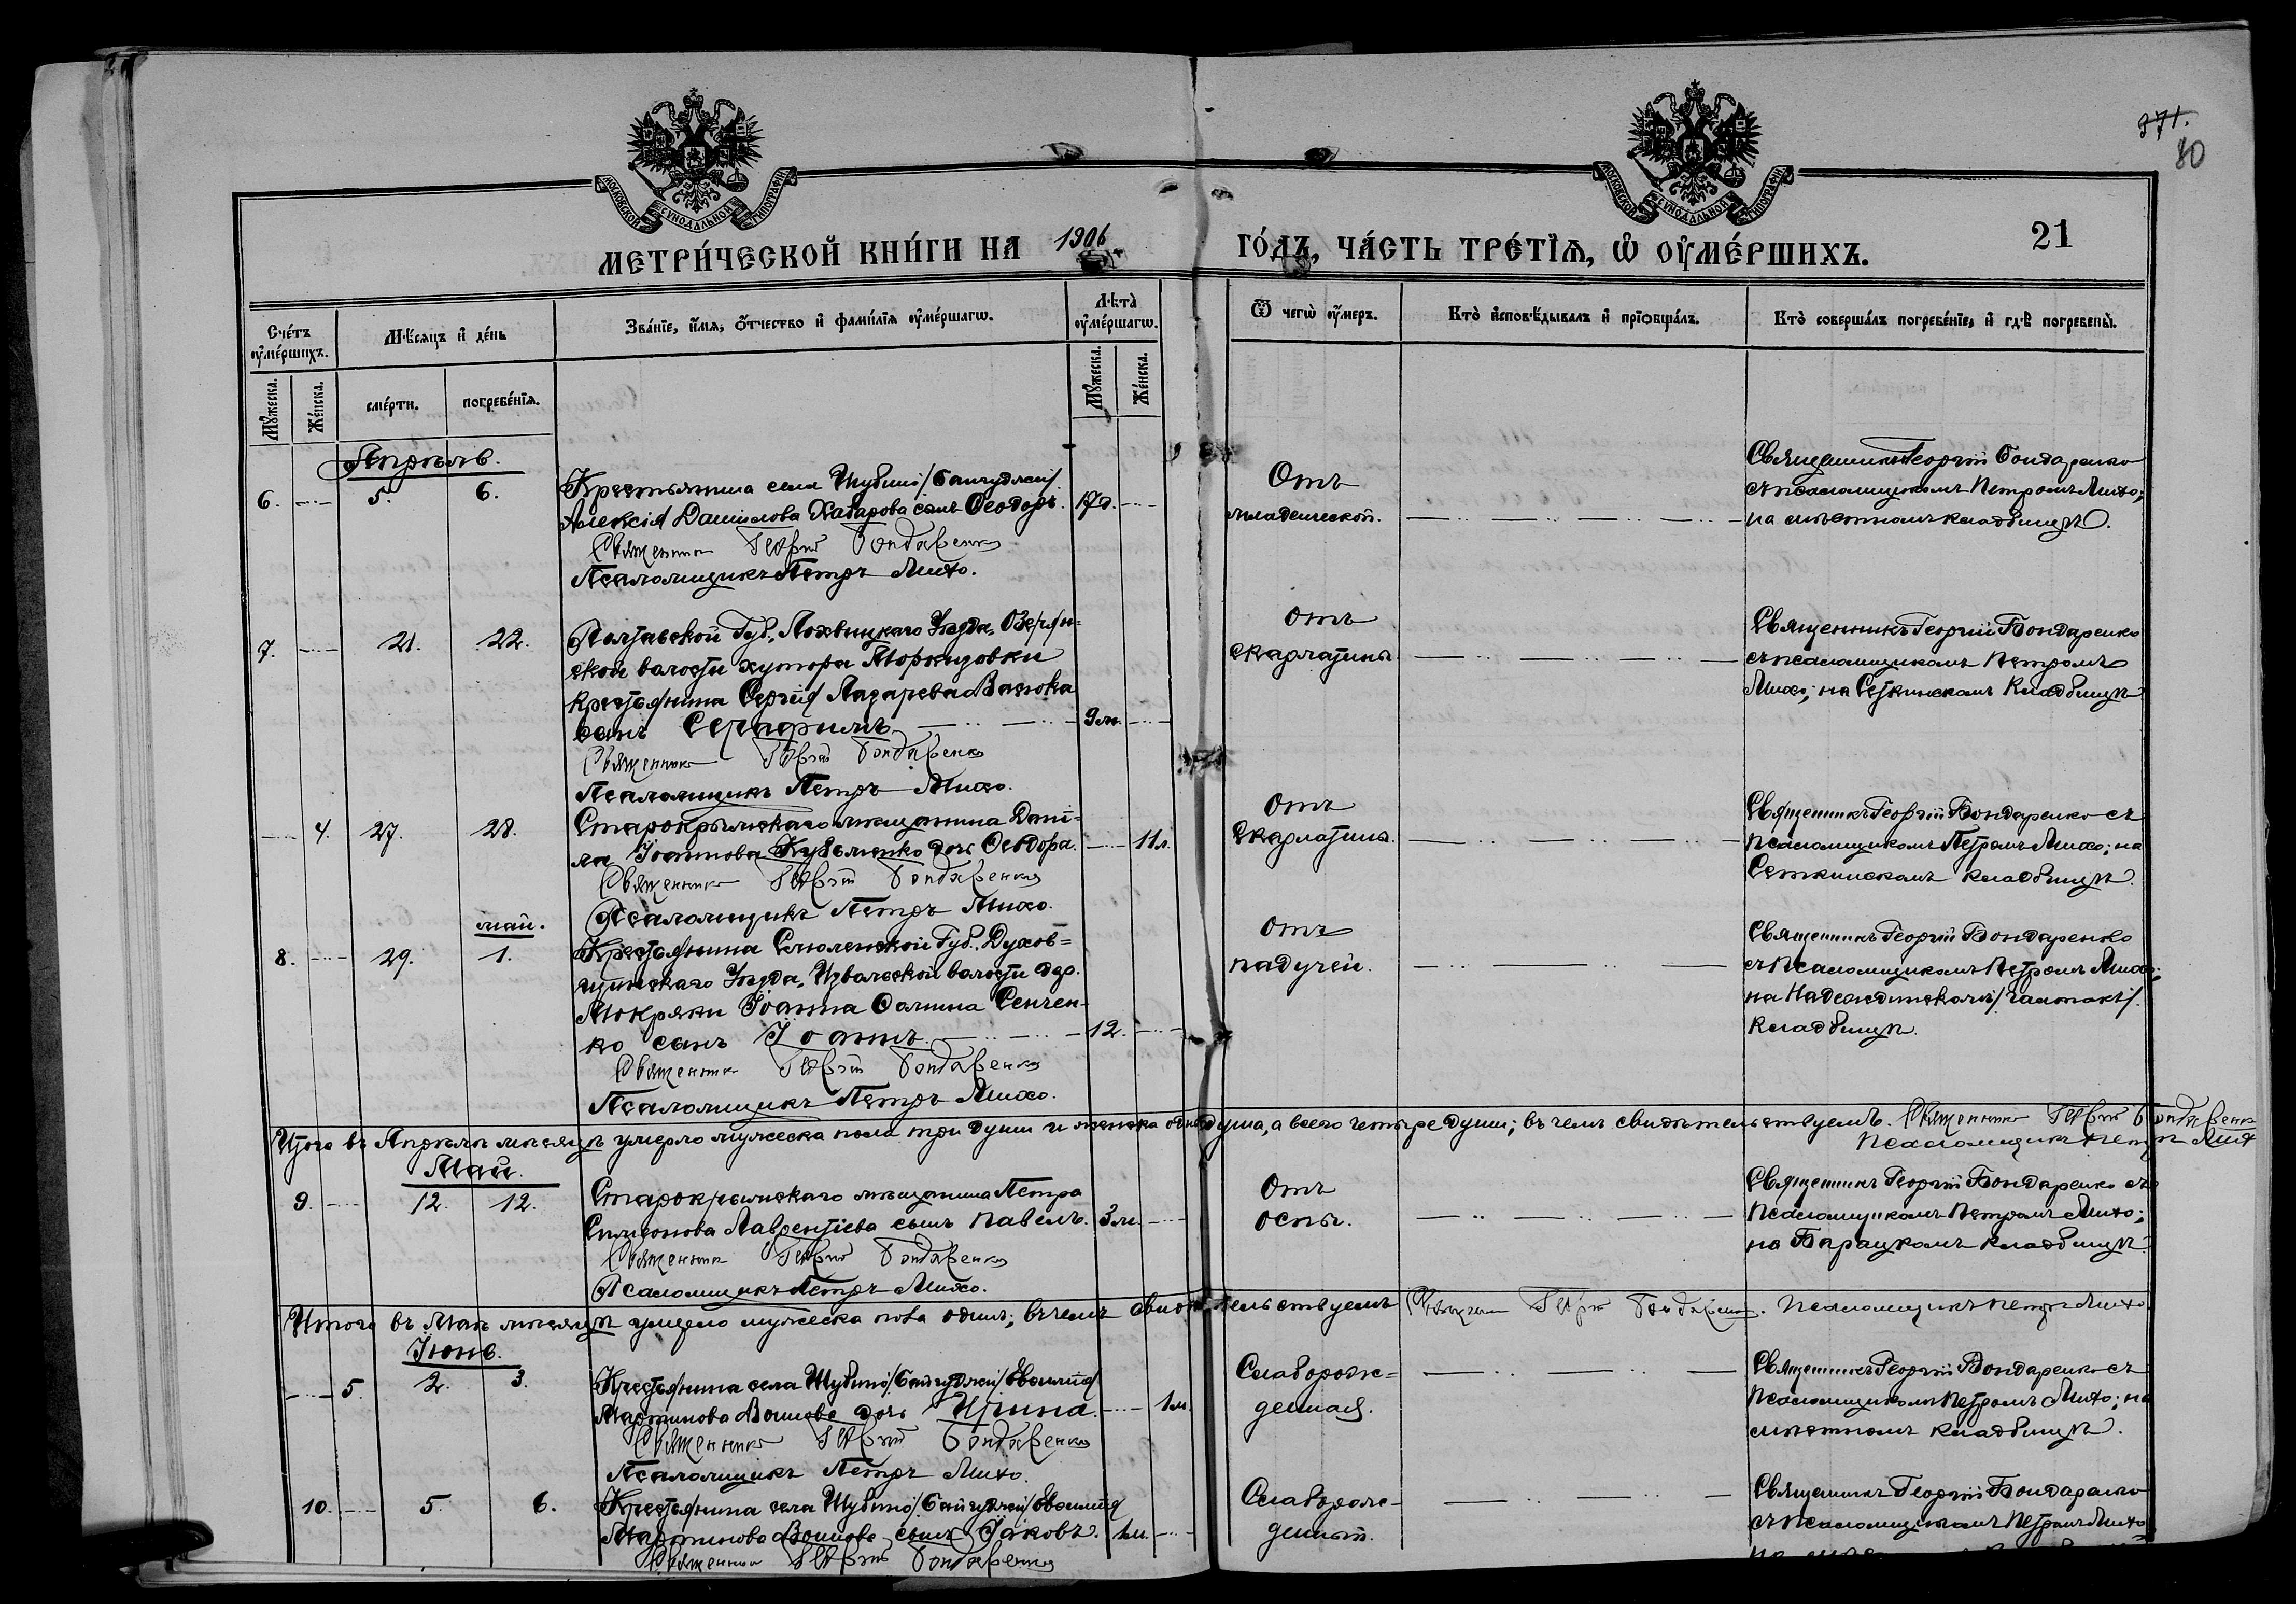 371.
80
МОСКОВСКОЙ СѴНОДАЛЬНОЙ ТИПОГРАФІИ
МОСКОВСКОЙ СѴНОДАЛЬНОЙ ТИПОГРАФІИ
МЕТРИ́ЧЕСКОЙ КНИ́ГИ НА 1906 ГО́ДЪ, ЧА́СТЬ ТРЕ́ТЇѦ, Ѡ҆ ОУ҆МЕ́РШИХЪ.
21
Сче́тъ оу҆ме́ршихъ.
Мꙋ́жеска.
Же́нска.
Мѣ́сяцъ и҆ де́нь
сме́рти.
погребе́нїѧ.
Зва́нїе, и҆́мѧ, ѻ҆́тчество и҆ фами́лїѧ оу҆ме́ршагѡ.
Лѣ́та оу҆ме́ршагѡ.
Мꙋ́жеска.
Же́нска.
Ѿ чегѡ̀ оу҆́меръ.
Кто̀ и҆сповѣ́дывалъ и҆ прїѡбща́лъ.
Кто̀ соверша́лъ погребе́нїе, и҆ гдѣ̀ погребены̀.
Апрѣль.
6. 5. 6.
Крестьянина села Шубино /Баигуджи/
Алексія Даніилова Хабарова сынъ Ѳеодоръ. 17д.
Священникъ Георгій Бондаренко
Псаломщикъ Петръ Михо.
Отъ
младенческой.
Священникъ Георгій Бондаренко
съ псаломщикомъ Петромъ Михо;
на мѣстномъ кладбищѣ.
7. 21. 22.
Полтавской Губ., Лохвицкаго Уѣзда, Озерян-
ской волости хутора
крестьянина Сергія Лазарева
сынъ Серафимъ. 9 м.
Священникъ Георгій Бондаренко
Псаломщикъ Петръ Михо.
отъ
скарлатины.
Священникъ Георгій Бондаренко
съ псаломщикомъ Петромъ
Михо; на Сеткинскомъ кладбищѣ
4. 27. 28.
Старокрымскаго мѣщанина Дані-
ла Іоаннова Кузьменко дочь Ѳеодора. 11 л.
Священникъ Георгій Бондаренко
Псаломщикъ Петръ Михо.
отъ
скарлатины.
Священникъ Георгій Бондаренко съ
псаломщикомъ Петромъ Михо; на
Сеткинскомъ кладбищѣ.
май.
8. 29. 1.
Крестьянина Смоленской Губ., Духов-
щинскаго Уѣзда, волости дер.
Мокряки Іоанна Ѳомина Сенчен-
ко сынъ Іоаннъ. 12.
Священникъ Георгій Бондаренко
Псаломщикъ Петръ Михо.
отъ
падучей.
Священникъ Георгій Бондаренко
съ псаломщикомъ Петромъ Михо;
на Надеждинскомъ
кладбищѣ.
Итого въ Апрѣлѣ мѣсяцѣ умерло мужеска пола три души и женска одна душа, а всего четыре души; въ чемъ свидѣтельствуемъ. Священникъ Георгій Бондаренко
Псаломщикъ Петръ Михо
Май.
9. 12. 12.
Старокрымскаго мѣщанина Петра
Симеонова Лаврентіева сынъ Павелъ. 3 м.
Священникъ Георгій Бондаренко
Псаломщикъ Петръ Михо.
отъ
оспы.
Священникъ Георгій Бондаренко съ
псаломщикомъ Петромъ Михо;
на Барацкомъ кладбищѣ.
Итого въ Маѣ мѣсяцѣ умерло мужеска пола одинъ; въ чемъ свидѣтельствуемъ Священникъ Георгій Бондаренко. Псаломщикъ Петръ Михо
Іюнь.
5. 2. 3.
Крестьянина села Шубино /Баигуджи/ Евѳимія
Мартинова Воинова дочь Ирина. 1 м.
Священникъ Георгій Бондаренко
Псаломщикъ Петръ Михо.
Слаборож-
денная.
Священникъ Георгій Бондаренко съ
псаломщикомъ Петромъ Михо; на
мѣстномъ кладбищѣ.
10. 5. 6.
Крестьянина села Шубино /Баигуджи/ Евѳимія
Мартинова Воинова сынъ Іаковъ. 1 м.
Священникъ Георгій Бондаренко
Слаборож-
денный.
Священникъ Георгій Бондаренко
съ псаломщикомъ Петромъ Михо